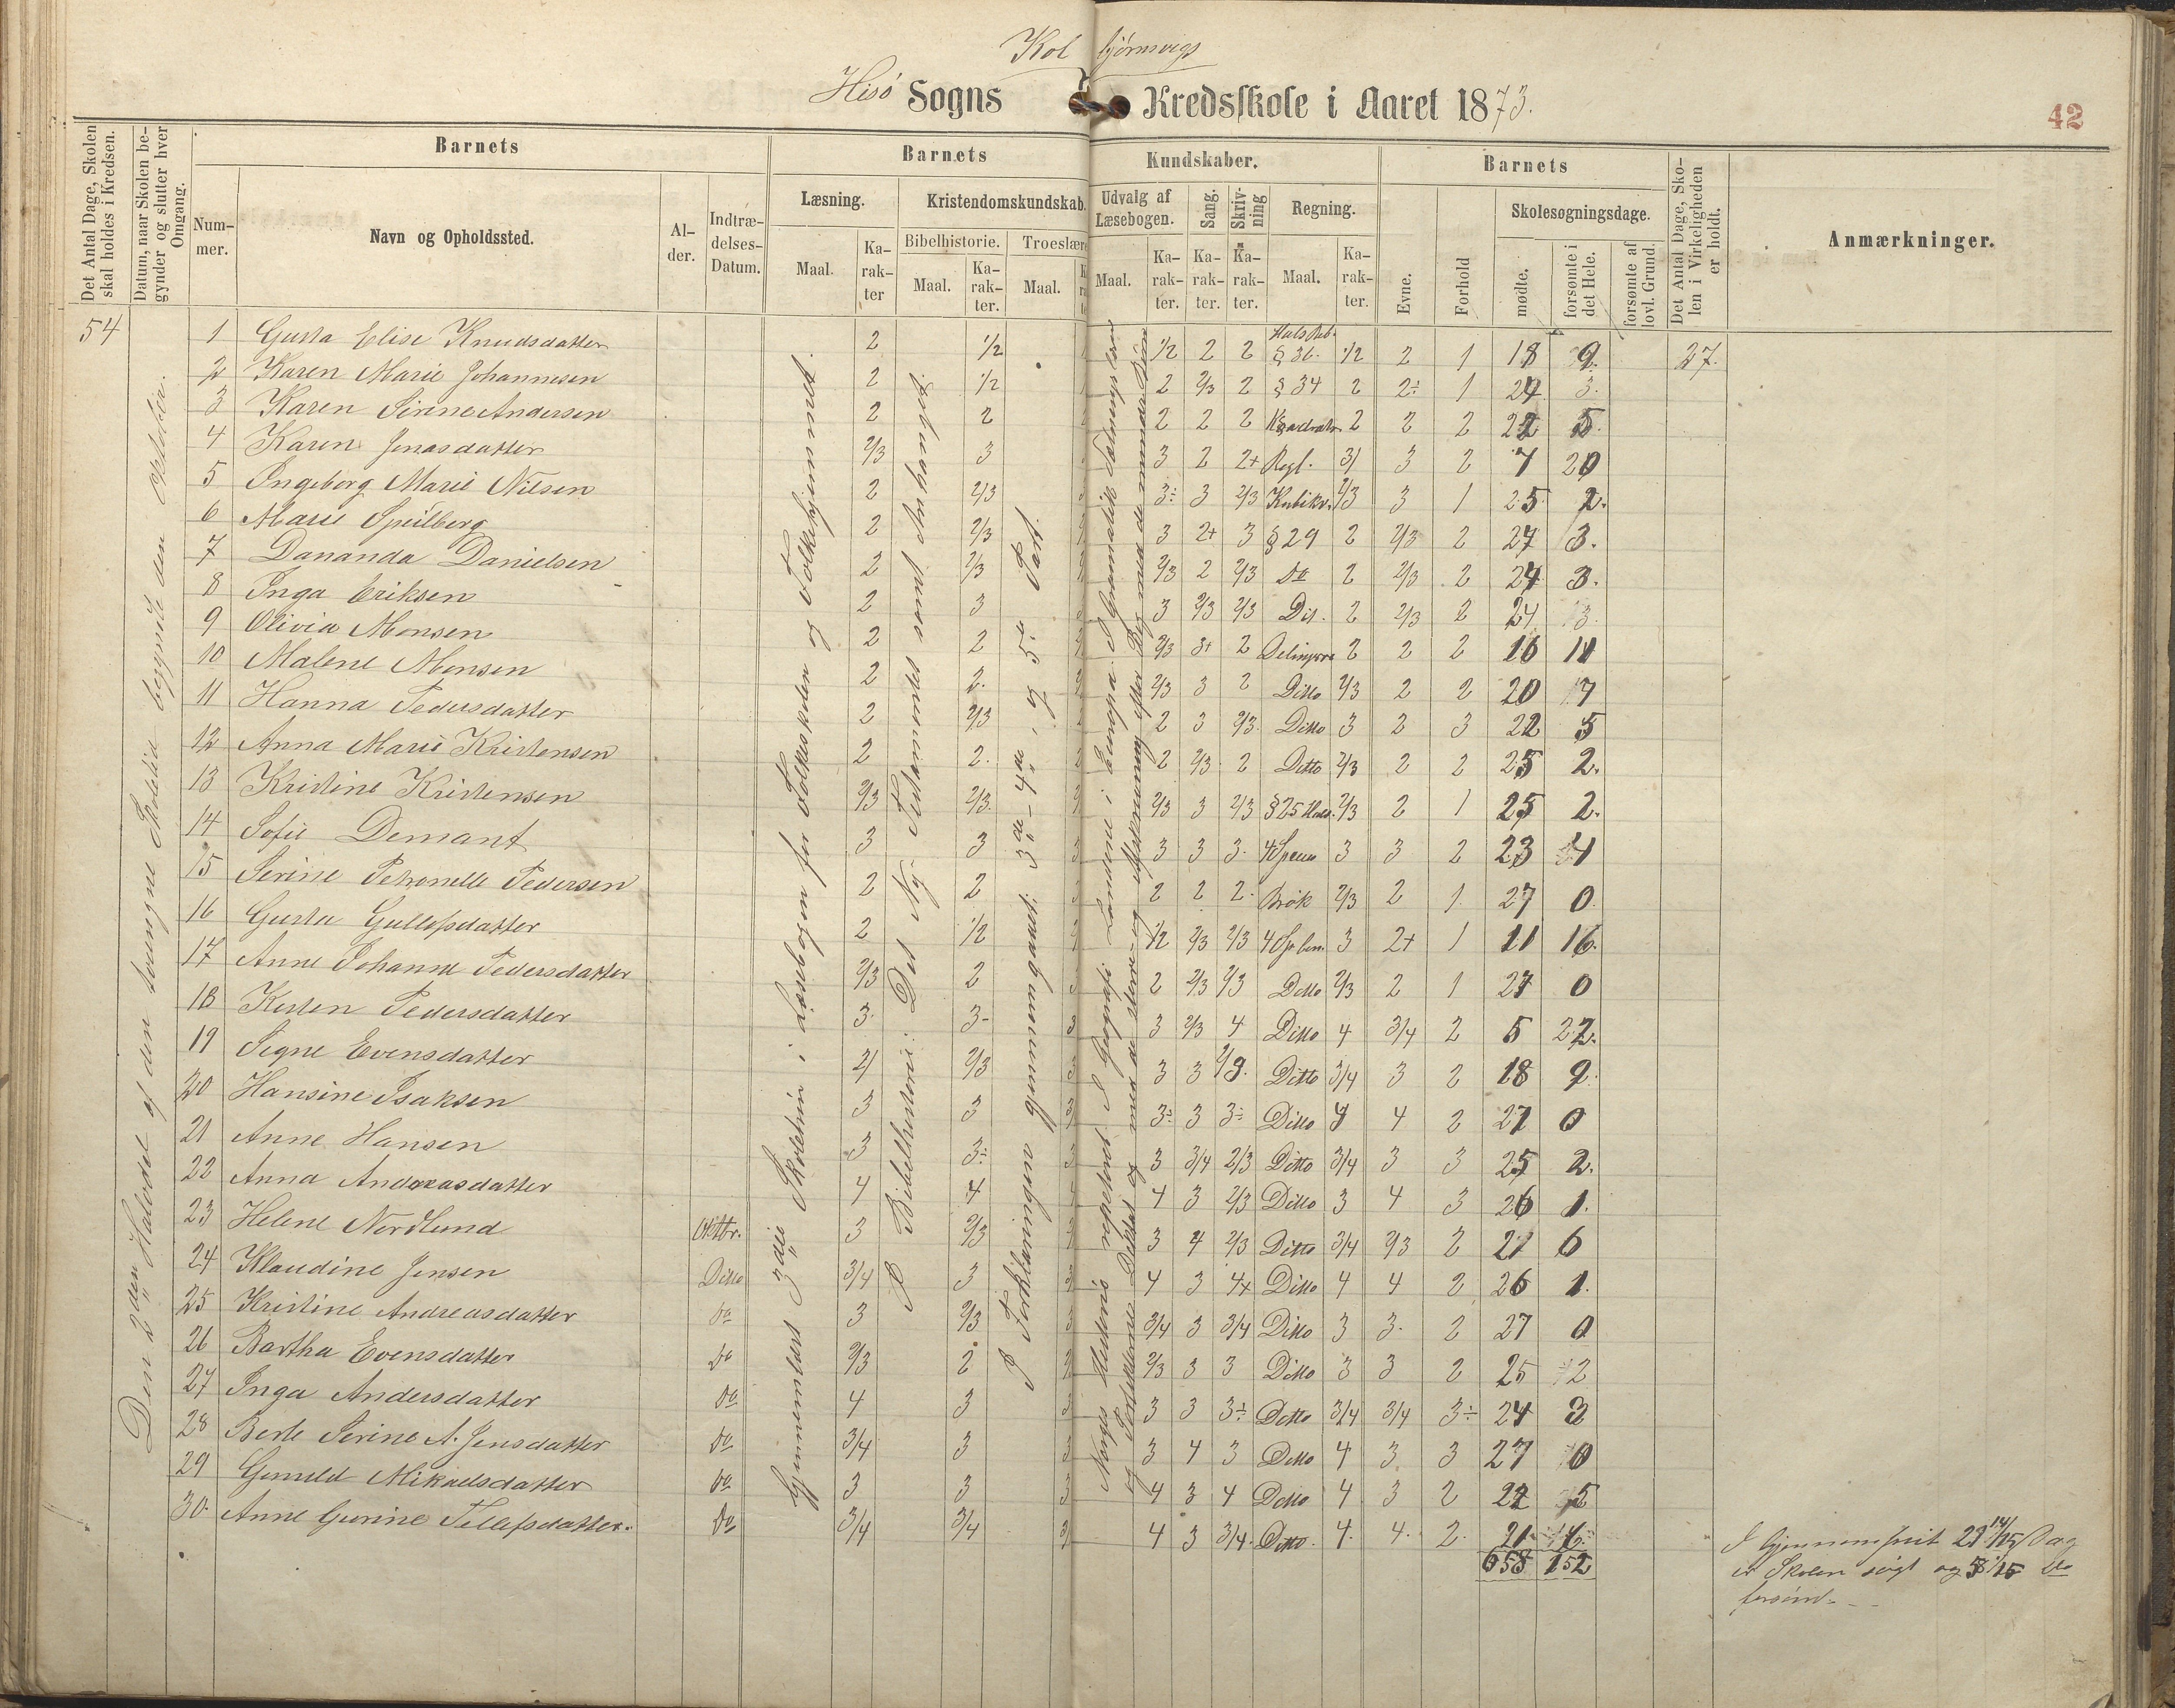 Kolbjørnsvigs
Hisö Sogns Kredsskole i Aaret 1873.
42
Det Antal Dage, Skolen skal holdes i Kredsen.
Datum, naar Skolen begynder og slutter hver Omgang.
Barnets
Nummer.
Navn og Opholdssted.
Alder.
Indtrædelses-Datum.
Barnets Kundskaber.
Læsning.
Maal.
Karakter
Kristendomskundskab.
Bibelhistorie.
Maal.
Karakter.
Troeslære
Maal.
Udvalg af Læsebogen.
Maal.
Karakter.
Sang.
Karakter.
Skrivning
Karakter.
Regning.
Maal.
Karakter.
Barnets
Evne.
Forhold
Skolesøgningsdage.
mødte.
forsømte i det Hele.
forsømte af lovl. Grund.
Det Antal Dage, Skolen i Virkeligheden er holdt.
Anmærkninger.
54
Den 2den Halvdel af den tvungne Skoletid begyndte den Oktober.
Gjennemlæst 3die Skoletrin i Læsebogen for Folkeskolen og Folkehjemmet.
I Bibelhistorie: Det Ny Testamentet samt Anhanget.
I Forklaringen gjennemgaaet: 3de - 4de, og 5te Part.
Norges Historie repeteret. I Geografi: Landene i Europa.
1 Gusta Elise Knudsdatter 2 1/2 1/2 2 2 § 36. 1/2 2 1 18 9. 27.
2 Karen Marie Johannesen 2 1/2 2 2/3 2 § 34 2 2÷ 1 24 3.
3 Karen Sirine Andersen 2 2 2 2 2 Kvadratr. 2 2 2 22 5.
4 Karen Jonasdatter 2/3 3 3 2 2+ Regl. 3/ 3 2 7 20
5 Ingeborg Marie Nilsen 2 2/3 3÷ 3 2/3 Kubikr. 2/3 3 1 25 2.
6 Marie Speilberg 2 2/3 3 2+ 3 § 29 2 2/3 2 24 3.
7 Dananda Danielsen 2 2/3 2/3 2 2/3 do 2 2/3 2 24 3.
8 Inga Eriksen 2 3 3 2/3 2/3 Dit. 2 2/3 2 24 3.
9 Olivia Monsen 2 2 2/3 3+ 2 2 2 2 16 11
10 Malene Monsen 2 2. 2/3 3 2 Ditto 2/3 2 2 20 7
11 Hanna Pedersdatter 2 2/3 2 3 2/3 Ditto 3 2 3 22 5
12 Anna Marie Kristensen 2 2. 2 2/3 2 Ditto 2/3 2 2 25 2.
13 Kristine Kristensen 2/3 2/3. 2/3 3 2/3 § 25 2/3 2 1 25 2.
14 Sofie Demant 3 3 3 3 3. 3 3 2 23 4
15 Serine Petronelle Pedersen 2 2 2 2 2. Brök 2/3 2 1. 27 0.
16 Gusta Gullefsdatter 2 1/2 1/2 2/3 2/3 3 2+ 1 11 16.
17 Anne Johanne Pedersdatter 2/3 2 2 2/3 2/3 Ditto 2/3 2 1 27 0
18 Kirsten Pedersdatter 3. 3- 3 2/3 4 Ditto 4 3/4 2 5 22.
19 Signe Evensdatter 2/ 2/3 3 3 2/3. Ditto 3/4 3 2 18 9.
20 Hansine Isaksen 3 3 3÷ 3 3÷ Ditto 4 4 2 27 0
21 Anne Hansen 3 3÷ 3 3/4 2/3 Ditto 3/4 3 3 25 2.
22 Anna Andreasdatter 4 4 4 3 2/3 Ditto 3 4 3 26 1.
23 Helene Nordlund Oktbr. 3 2/3 3 4 2/3 Ditto 3/4 2/3 2 21 6
24 Klaudine Jensen Ditto 3/4 3 4 3 4+ Ditto 4 4 2 26 1.
25 Kristine Andreasdatter do 3 2/3 3/4 3 3/4 Ditto 3 3. 2 27 0
26 Bartha Evensdatter do 2/3 2 2/3 3 3 Ditto 3 3 2 25 2
27 Inga Andersdatter do 4 3 3 3 3÷ Ditto 3/4 3/4 3÷ 24 3
28 Berte Serine A. Jensdatter do 3/4 3 3 4 3 Ditto 4 3 3 27 0
29 Gunild Mikaelsdatter do 3 3 4 3 4 Ditto 4 3 2 22 5
30. Anne Gurine Tellefsdatter. do 3/4 3/4 4 3 3/4. Ditto. 4. 4. 2. 21 6
658 152
I Gjennemsnit 21 14/15 Dag
er Skolen søgt og 5 1/15 do
forsømt. - -